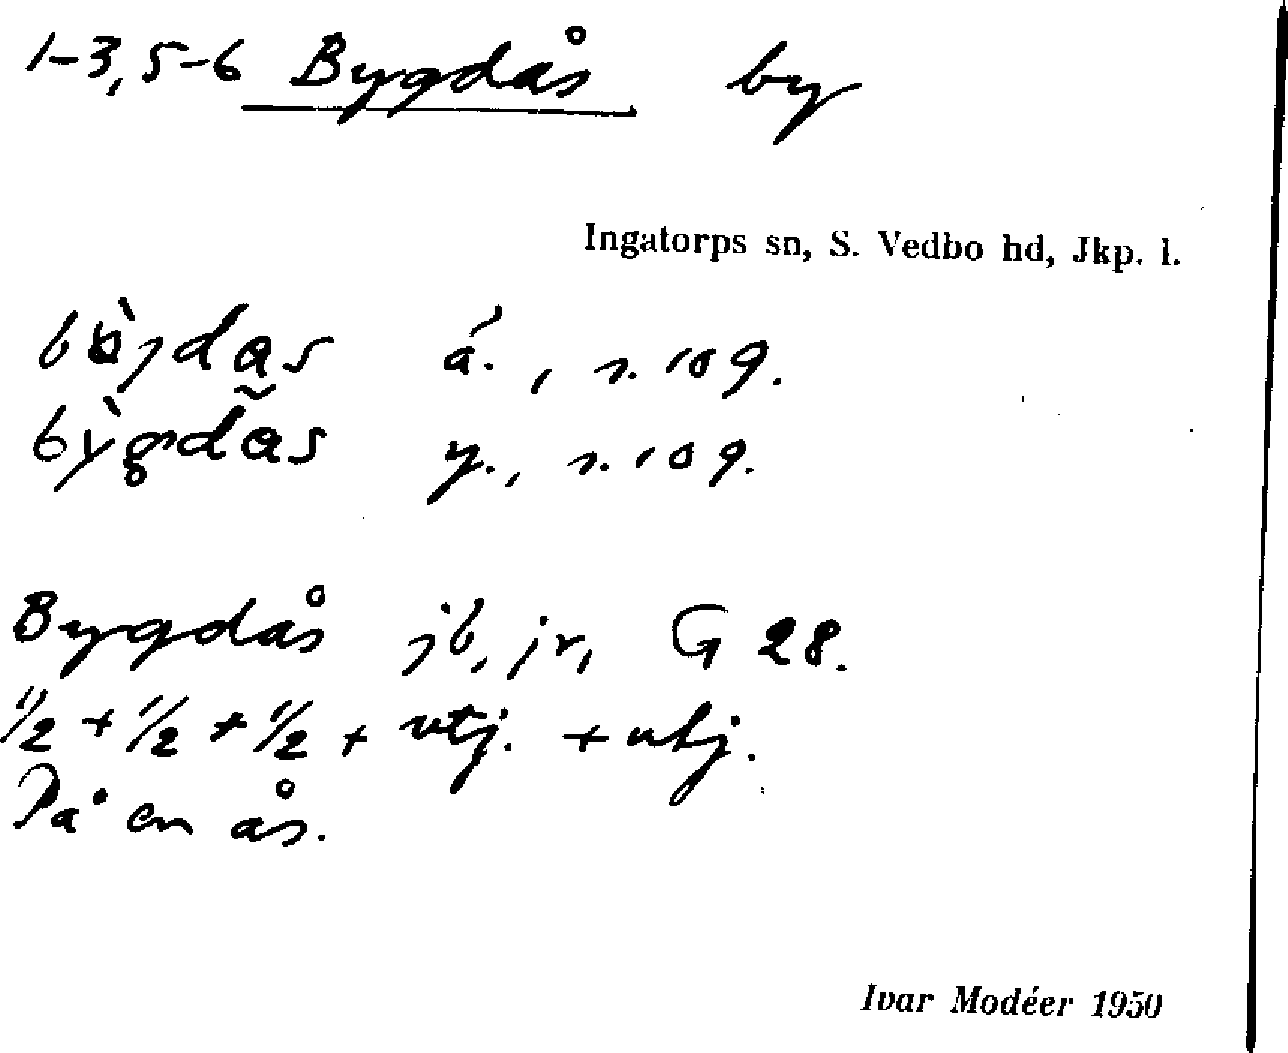 1-3, 5-6 Bygdås by
Ingatorps sn, S. Vedbo hd, Jkp. l.
ä., s. 109.
bỳgdas y., s. 109.
Bygdås jb, jr, G 28.
1/2 + 1/2 + 1/2 + utj. + utj.
På en ås.
Ivar Modéer 1950